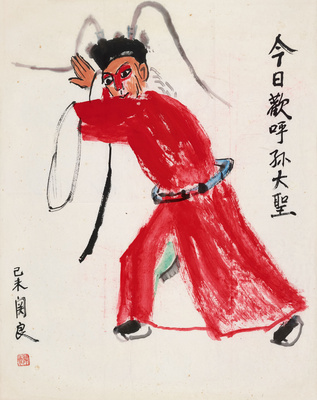 今日歡呼孫大聖
己未 関良